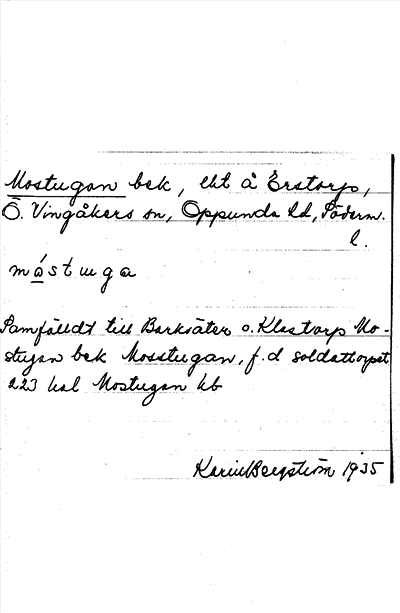 Mostugan bek, lht å Erstorp,
Ö. Vingåkers sn, Oppunda hd, Söderm.
l.
måstuga
Samfälldt till Barksäter o. Klastorp Mo-
stugan bek Mosstugan, f.d soldattorpet
223 kal Mostugan kb
Karin Bergström 1935